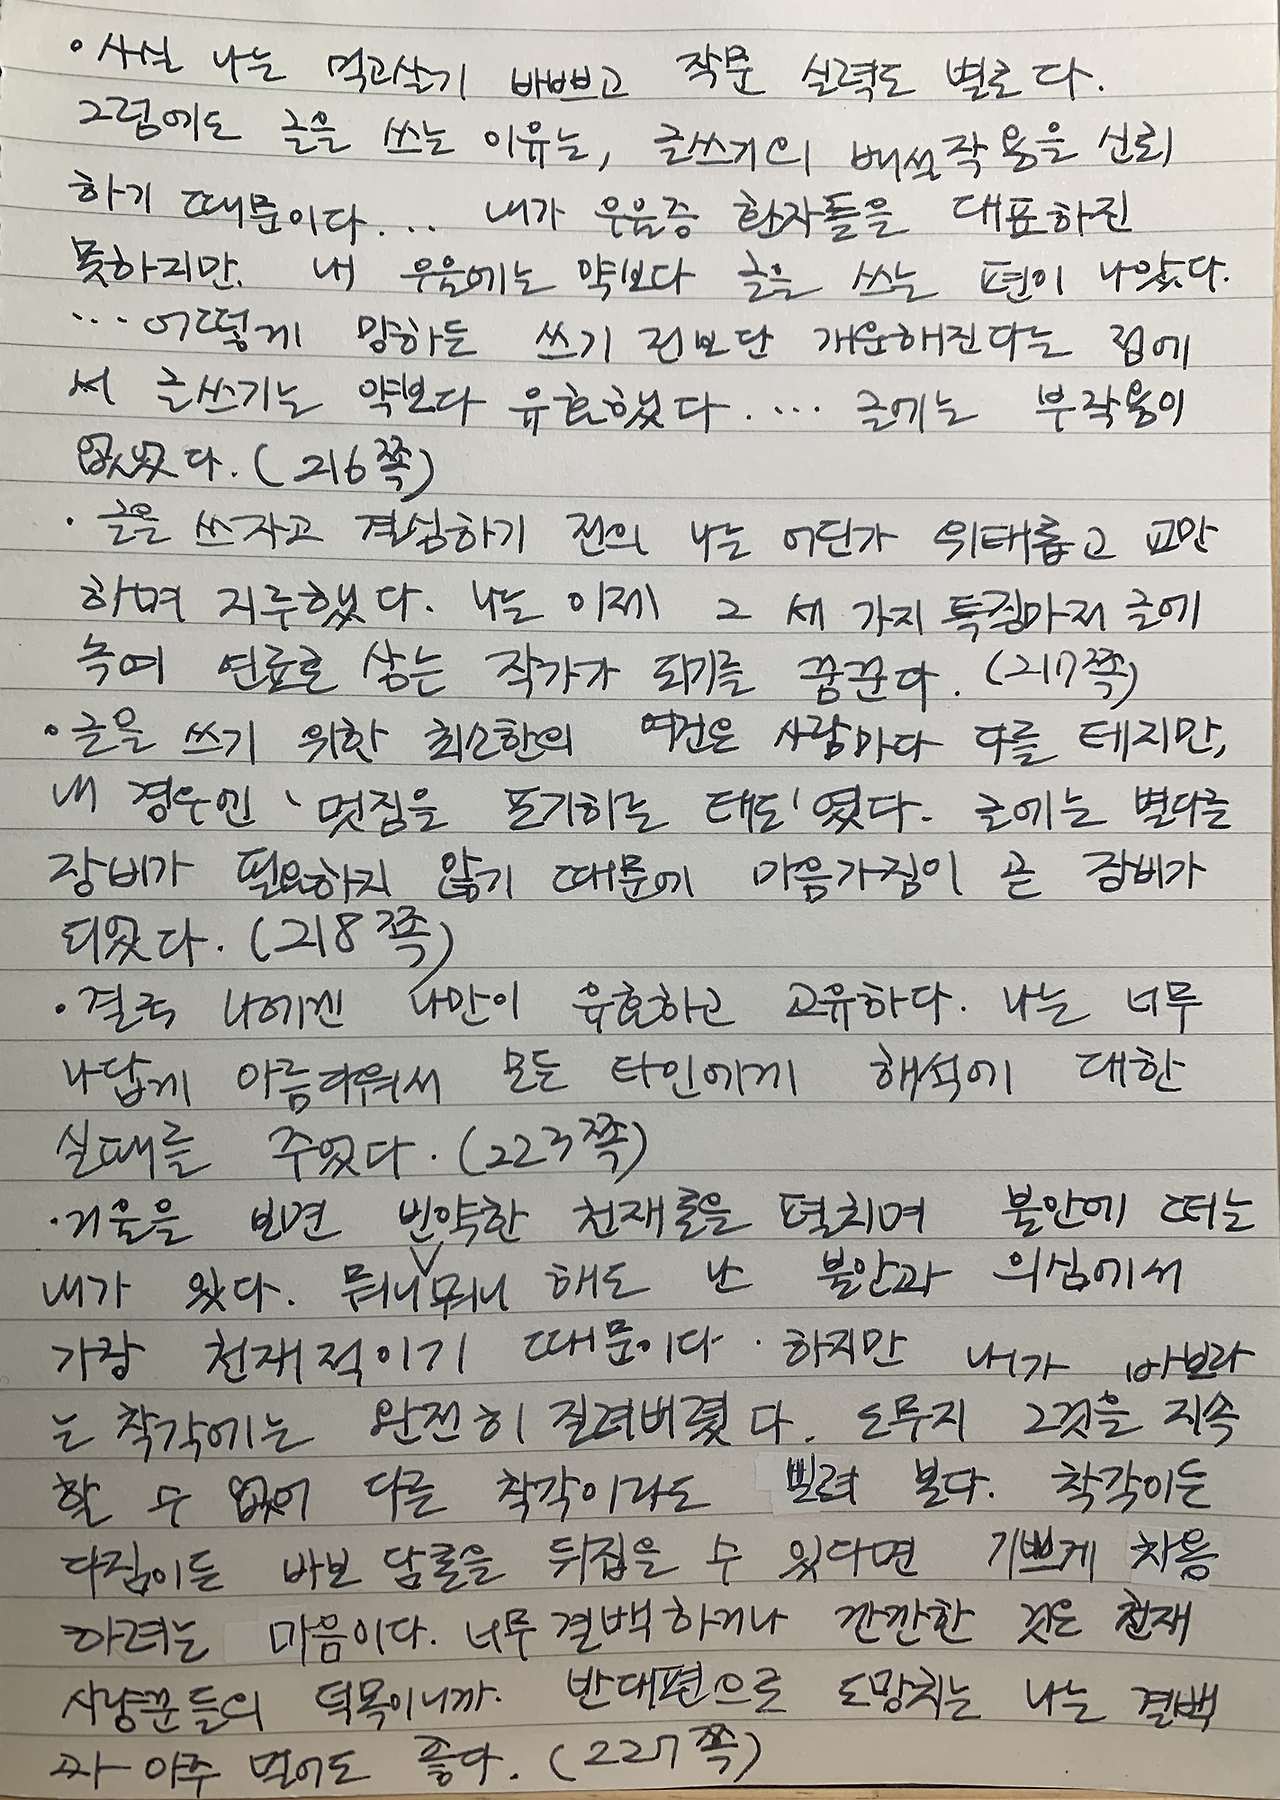 • 사실 나는 먹고살기 바쁘고 작문 실력도 별로다.
그럼에도 글을 쓰는 이유는, 글쓰기의 배설작용을 신뢰
하기 때문이다.... 내가 우울증 환자들을 대표하진
못하지만, 내 우울에는 약보다 글을 쓰는 편이 나았다.
... 어떻게 망하든 쓰기 전보단 개운해진다는 점에
서 글쓰기는 약보다 유효했다.... 글에는 부작용이
없었다. (216쪽)
• 글을 쓰자고 결심하기 전의 나는 어딘가 위태롭고 교만
하며 지루했다. 나는 이제 그 세 가지 특징마저 글에
녹여 연료로 삼는 작가가 되기를 꿈꾼다. (217쪽)
• 글을 쓰기 위한 최소한의 여건은 사람마다 다를 테지만,
내 경우엔 '멋짐을 포기하는 태도'였다. 글에는 별다른
장비가 필요하지 않기 때문에 마음가짐이 곧 장비가
되었다. (218쪽)
• 결국 나에겐 나만이 유효하고 고유하다. 나는 너무
나답게 아름다워서 모든 타인에게 해석에 대한
실패를 주었다. (223쪽)
• 거울을 보면 빈약한 천재론을 펼치며 불안에 떠는
내가 있다. 뭐니∨뭐니 해도 난 불안과 의심에서
가장 천재적이기 때문이다. 하지만 내가 바보라
는 착각에는 완전히 질려버렸다. 도무지 그것을 지속
할 수 없어 다른 착각이라도 빌려 본다. 착각이든
다짐이든 바보 담론을 뒤집을 수 있다면 기쁘게 차용
하려는 마음이다. 너무 결백하거나 깐깐한 것은 천재
사냥꾼들의 덕목이니까. 반대편으로 도망치는 나는 결백
과 아주 멀어도 좋다. (227쪽)